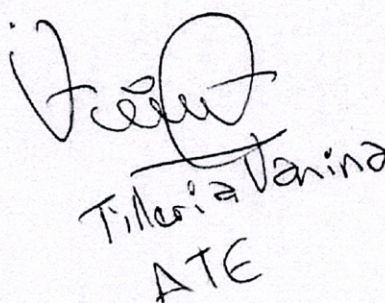 Tilleria Vanina
ATE